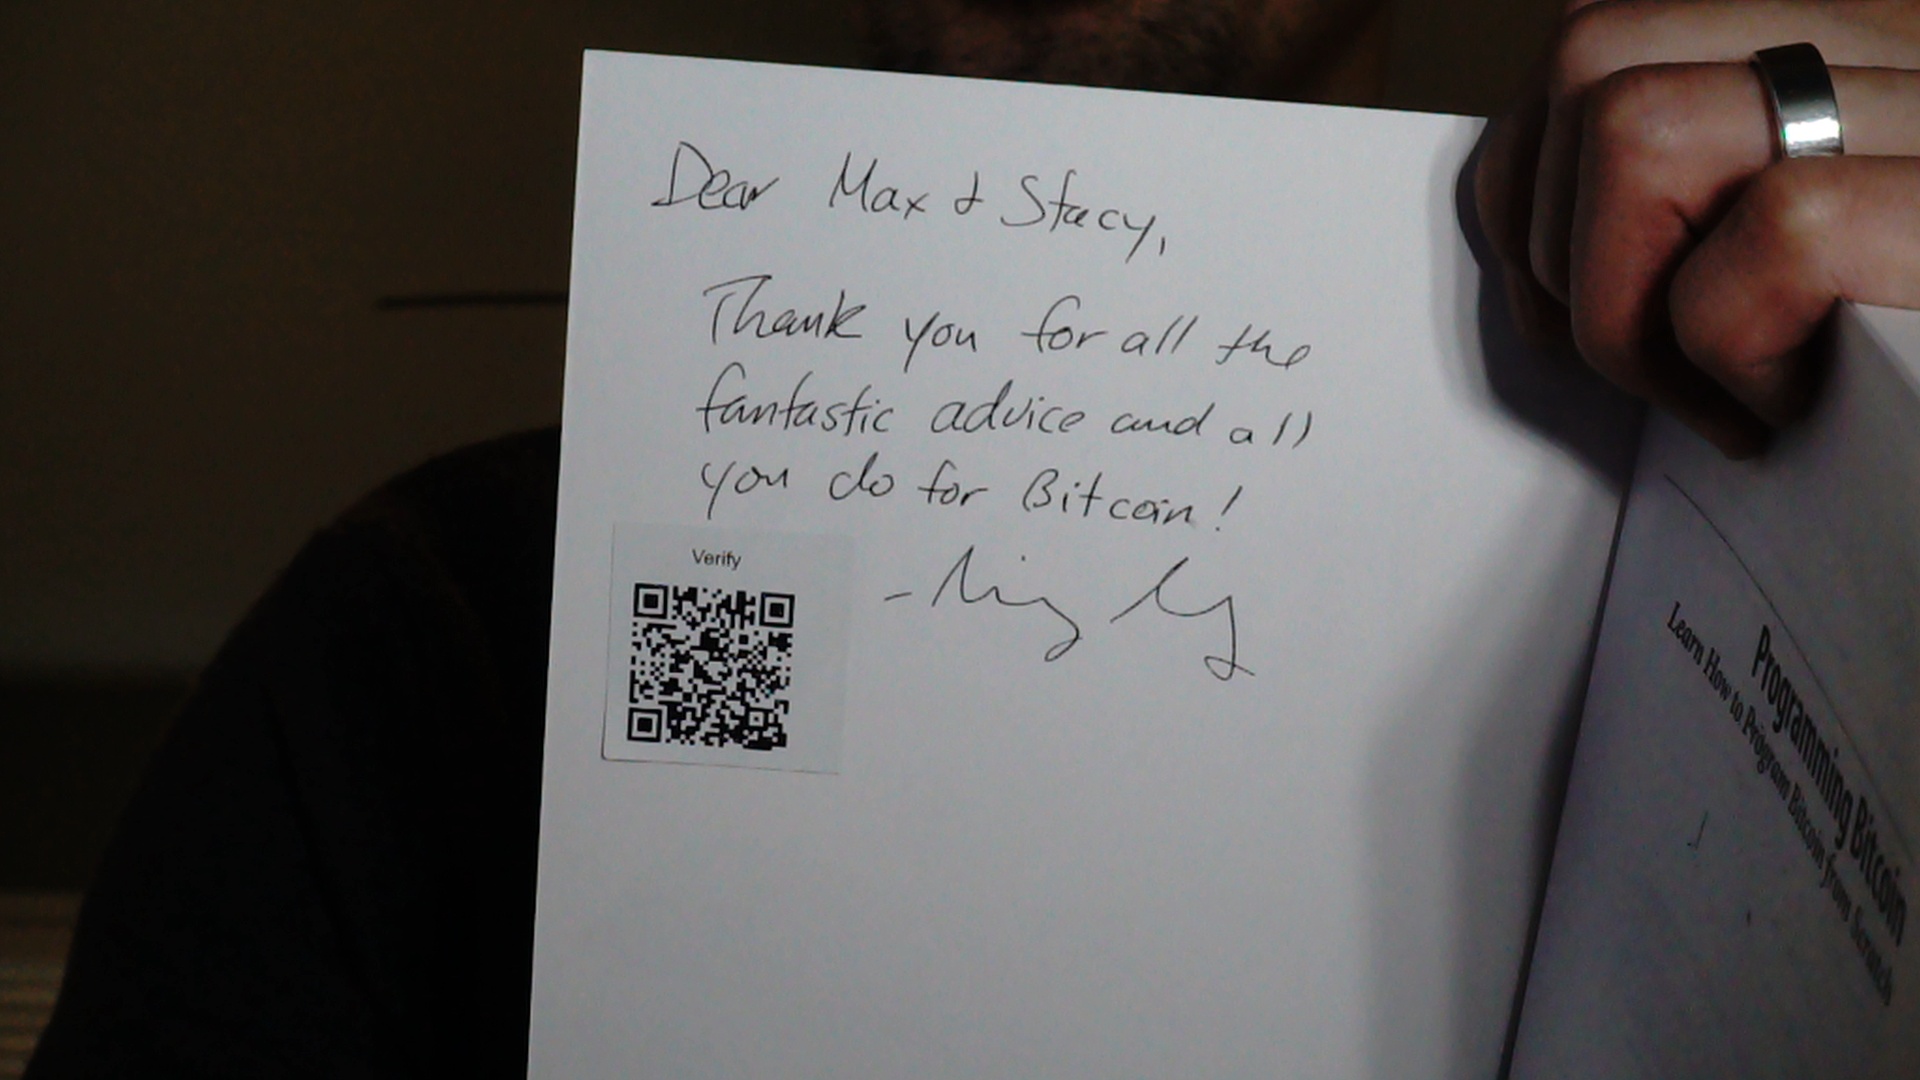 Dear Max & Stacy,
Thank you for all the
fantastic advice and all
you do for Bitcoin!
Verify
Programming Bitcoin
Learn How to Program Bitcoin from Scratch